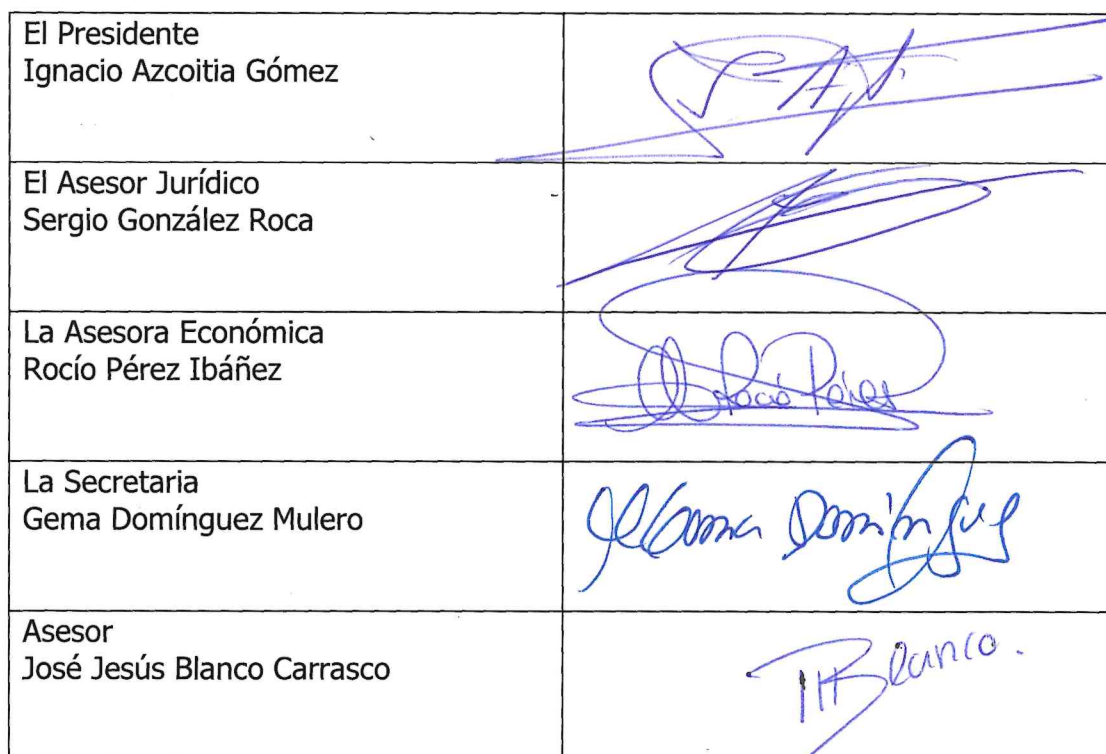 El Presidente
Ignacio Azcoitia Gómez
El Asesor Jurídico
Sergio González Roca
La Asesora Económica
Rocío Pérez Ibáñez
Rocío Pérez
La Secretaria
Gema Domínguez Mulero
Domínguez
Asesor
José Jesús Blanco Carrasco
Blanco.